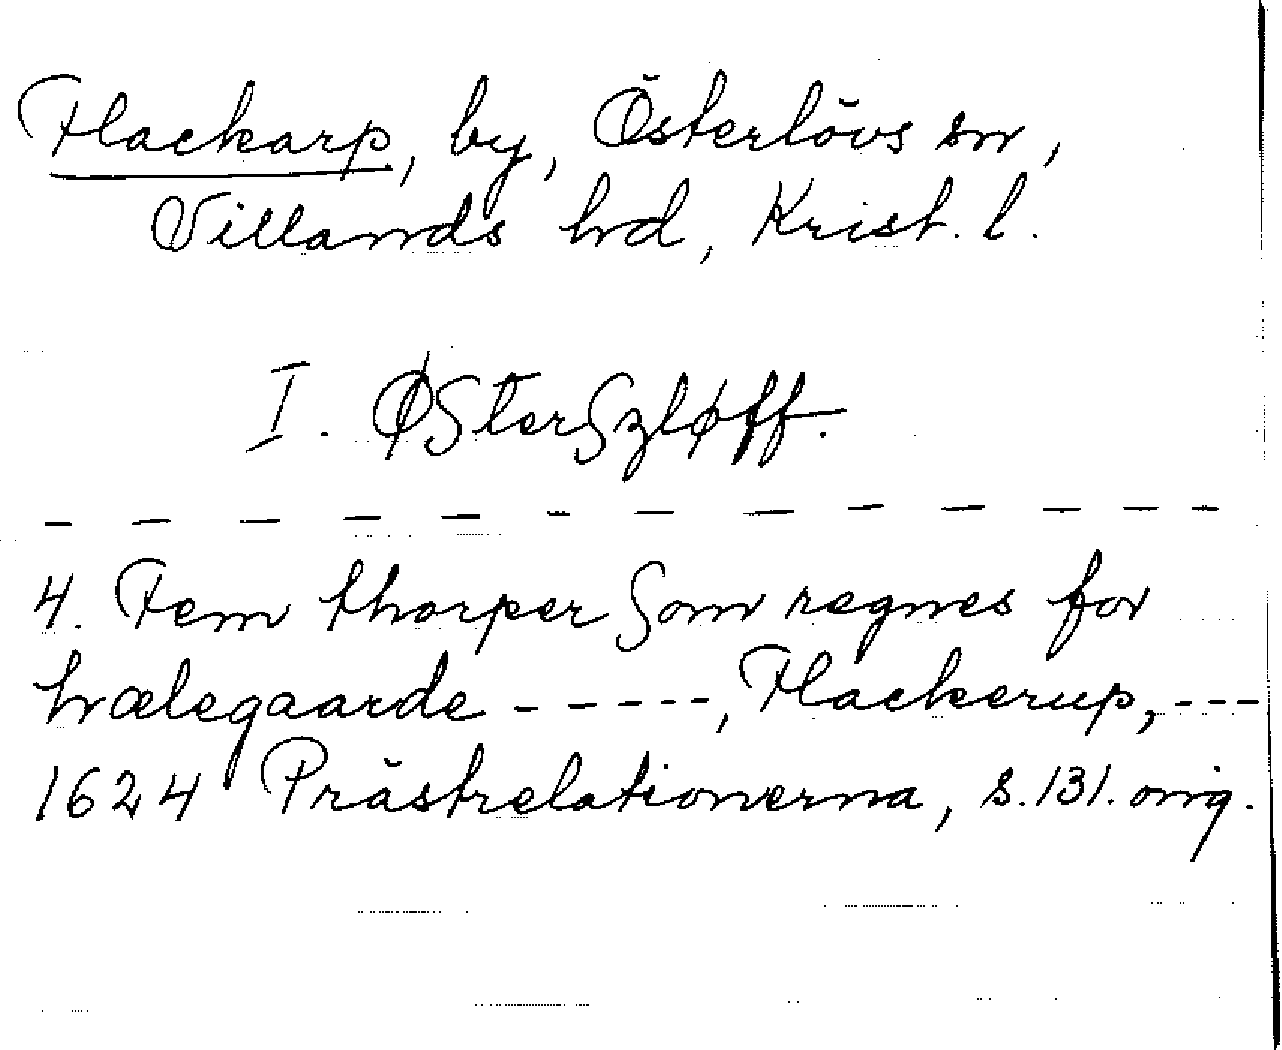 Flackarp, by, Österlövs sn,
Villands hd, Krist. l.
I. Østerszløff.
— — — — — — — — — — — —
4. Fem thorper som regnes for
hælegaarde - - - - -, Flackerup, - - -
1624 Prästrelationerna, s. 131. orig.